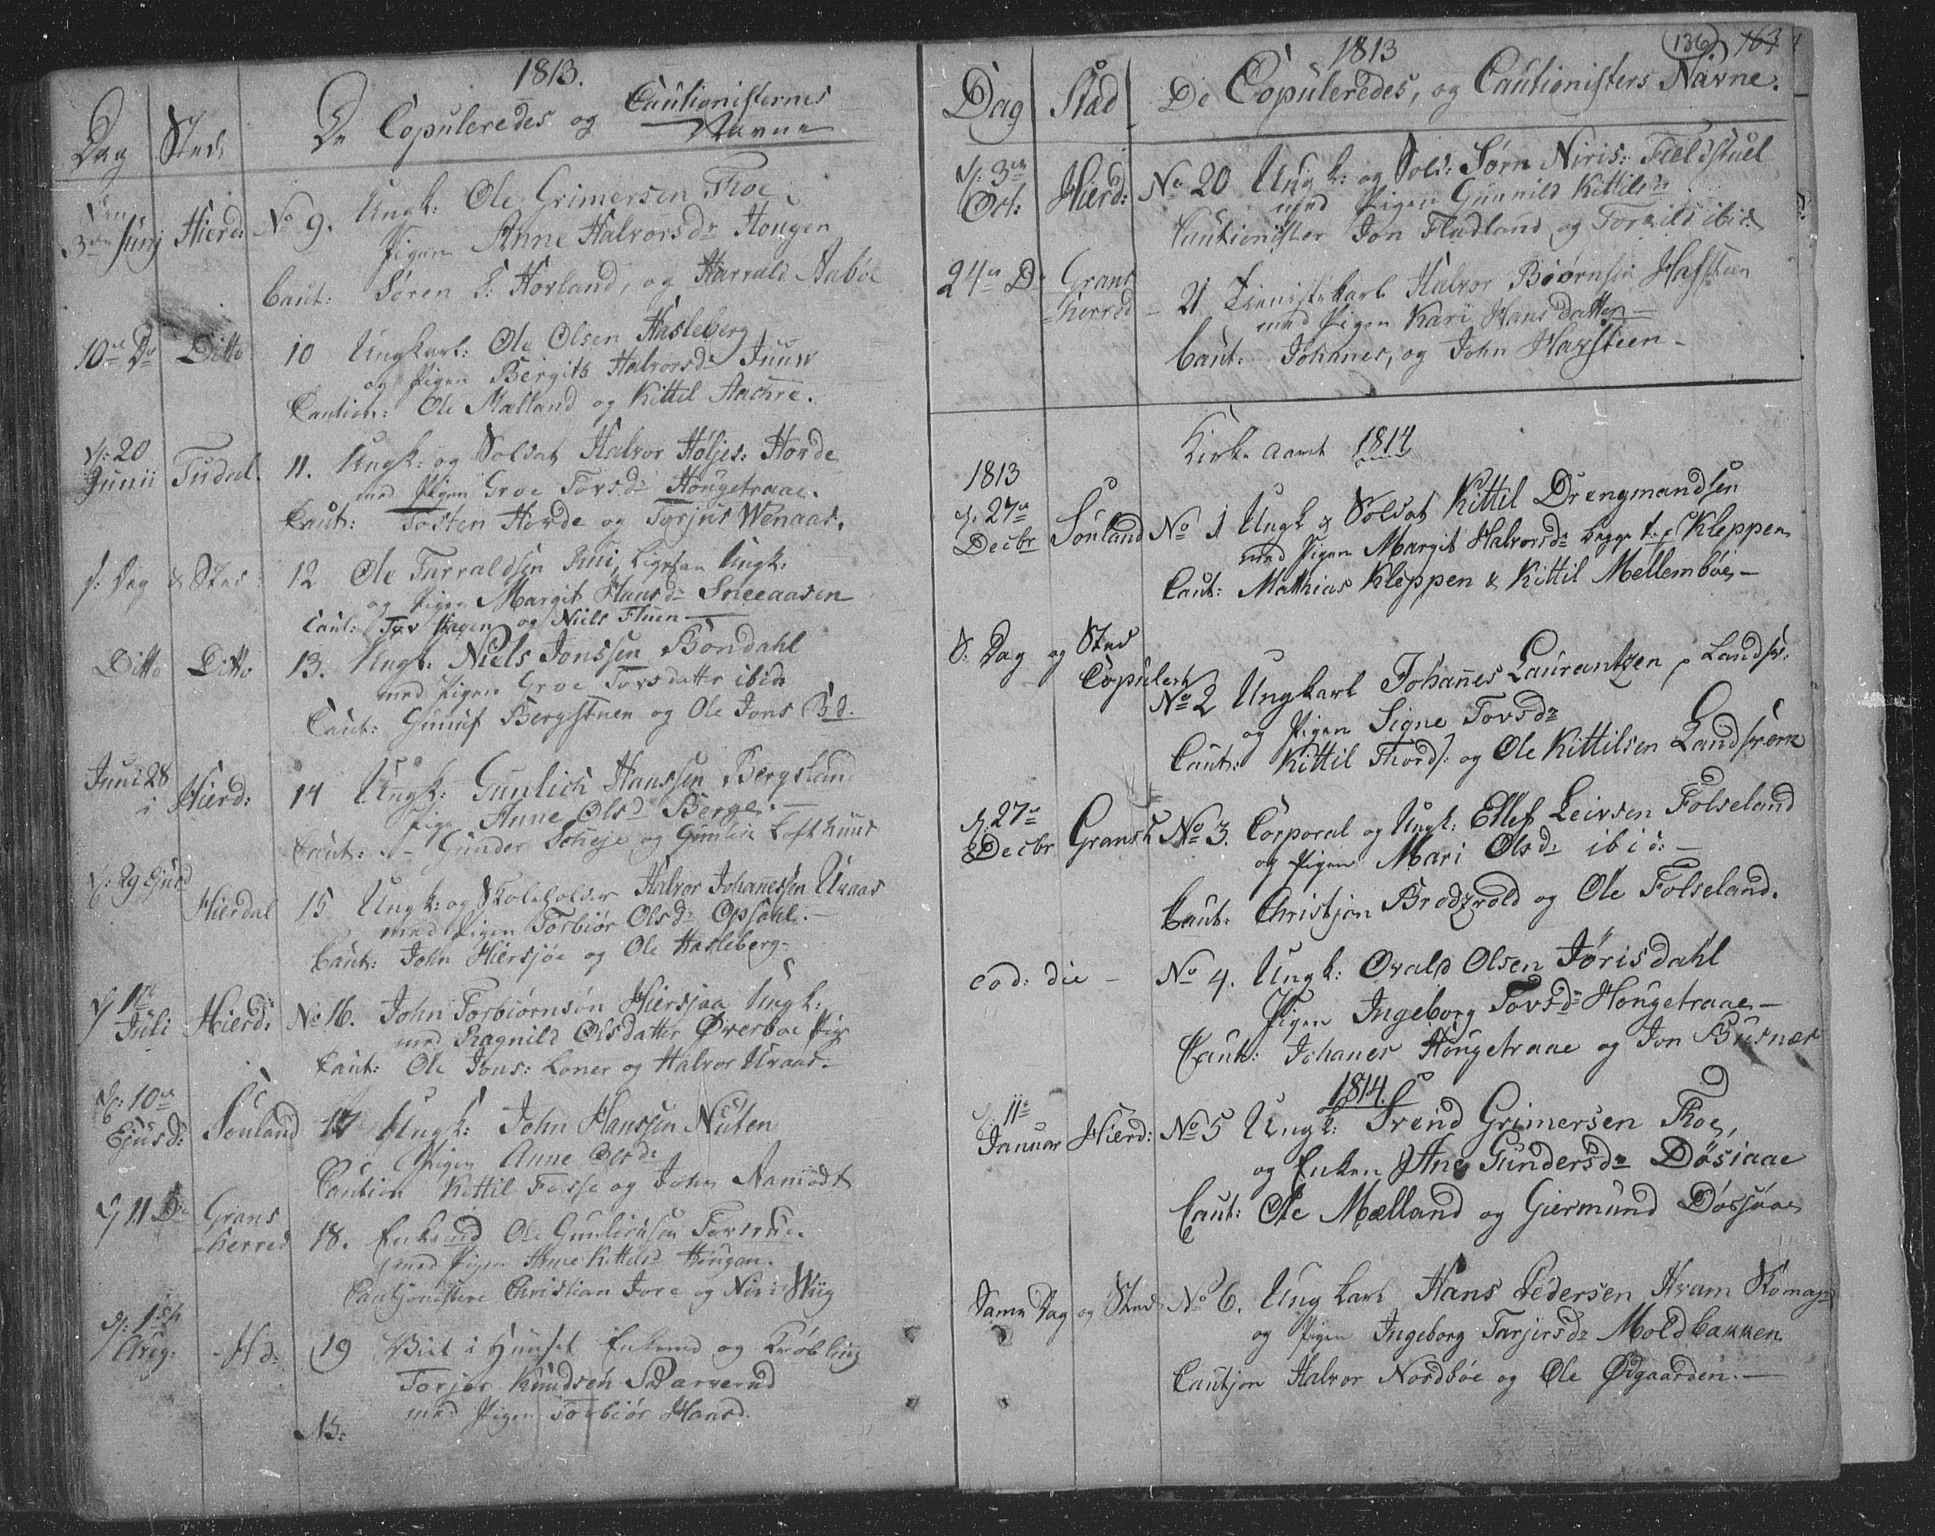 1813.
Dag Sted De Copuleredes og Cautionisternes
Navne
Den
3die Junj Hierd: No 9. Ungk: Ole Grimersen Froe
Pigen Anne Halvorsdr Hougen
Caut: Søren S: Hovland, og Harrald Aabøe
10de Do Ditto 10 Ungkarl: Ole Olsen Hasleberg
og Pigen Bergith Halvorsdr Juuv
Caution: Ole Mælland og Kittil
d: 20
Junii Tudal. 11. Ungk: og Soldat Halvor Høljes: Hovde
med Pigen Groe Tovsdr Hougetraae.
Caut: Tosten Hovde og Tyrjus Wenaas.
s: Dag & Sted 12 Ole Tarraldsen Ligesaa Ungk:
og Pigen Margit Hansdr Sneeaasen
Caut: Tov Hagen og Niels Fluen
Ditto Ditto 13. Ungk: Niels Jonssen Bondahl
med Pigen Groe Torsdatter ibid:
Caut: Gunuf Bergstuen og Ole Jons Bd.
Juni 28
Hierd: 14 Ungk: Gunlich Hanssen Bergsland
Pige Anne Olsd Berge.
Caut: Gunder Scheje og Gunlich Lofthuus
d: 29 Ejusd
Hierdal 15 Ungk: og Skoleholder Halvor Johannessen Uraas
med Pigen Torbiør Olsdr Opsahl.
Caut: John Hiersjøe og Ole Hasleberg
d 1ste
Juli Hierd: No 16. John Torbiørnsøn Hiersjaa Ungk:
med Ragnild Olsdatter Øverboe Pig
Caut: Ole Jons: Loner og Halvor Uraas
d: 10de
Ejusd: Souland 17 Ungk: John Hanssen Nuten
Pigen Anne Olsdr
Caution Kittil Fosse og John Aamodt
d 11 Do Grans
herred 18. Enkemd Ole Gunlichsen
med Pigen Anne Kittelsd Hougan.
Cautjonistere Christian Jore og Niri Wiig
d: 1ste
Aug: Hd: 19 Viet i Huuset Enkemd og
Torjer Knudsen
med Pigen Torbiør Hansd.
NB:
1813
136 163
Dag Stæd De Copuleredes, og Cautionisters Navne.
d: 3die
Oct: Hierd: No 20 Ungk: og Sold: Sørn Niris: Fieldstuel
med Pigen Gunnild Kittilsdr
Cautionister Jon Fladland og Torkild ibid
24de Do Grans
herred 21 Tienistekarl Halvor Biørnsen Hafsteen
med Pigen Kari Hansdatter
Caut: Johanes, og John Havsteen
Kirke Aaret 1814
1813
d. 27de
Decbr Souland No 1 Ungk & Soldat Kittil Drengmandsen
med Pigen Margit Halvorsdr begge fra Kleppen
Caut: Mathias Kleppen & Kittil Mellembøe
S: Dag og Sted
Copulert
No 2 Ungkarl Johannes Laurantzen p Landsv:
og Pigen Signe Tovsdr
Caut: Kittil Thords: og Ole Kittilsen Landsverk
d: 27de
Decbr Gransh No 3. Corporal og Ungk: Ellef Leivsen Folseland
og Pigen Mari Olsdr ibid:
Caut: Christjan Brodzvold og Ole Folseland.
eod: die No 4. Ungk: Ovald Olsen Jørisdahl
Pigen Ingeborg Tovsdr Hougetraae
Caut: Johanes Hougetraae og Jon Busnes
1814.
d: 11te
Januar Hierd: No 5 Ungk: Svend Grimersen Froe,
og Enken Ane Gundersdr Dösiaae
Caut: Ole Mælland og Giermund Døssjaae
Samme Dag og Sted No 6. Ungkarl Hans Pedersen Hvam
og Pigen Ingeborg Tarjersdr Moldbakken
Cautjon Halvor Nordbøe og Ole Ødgaarden.